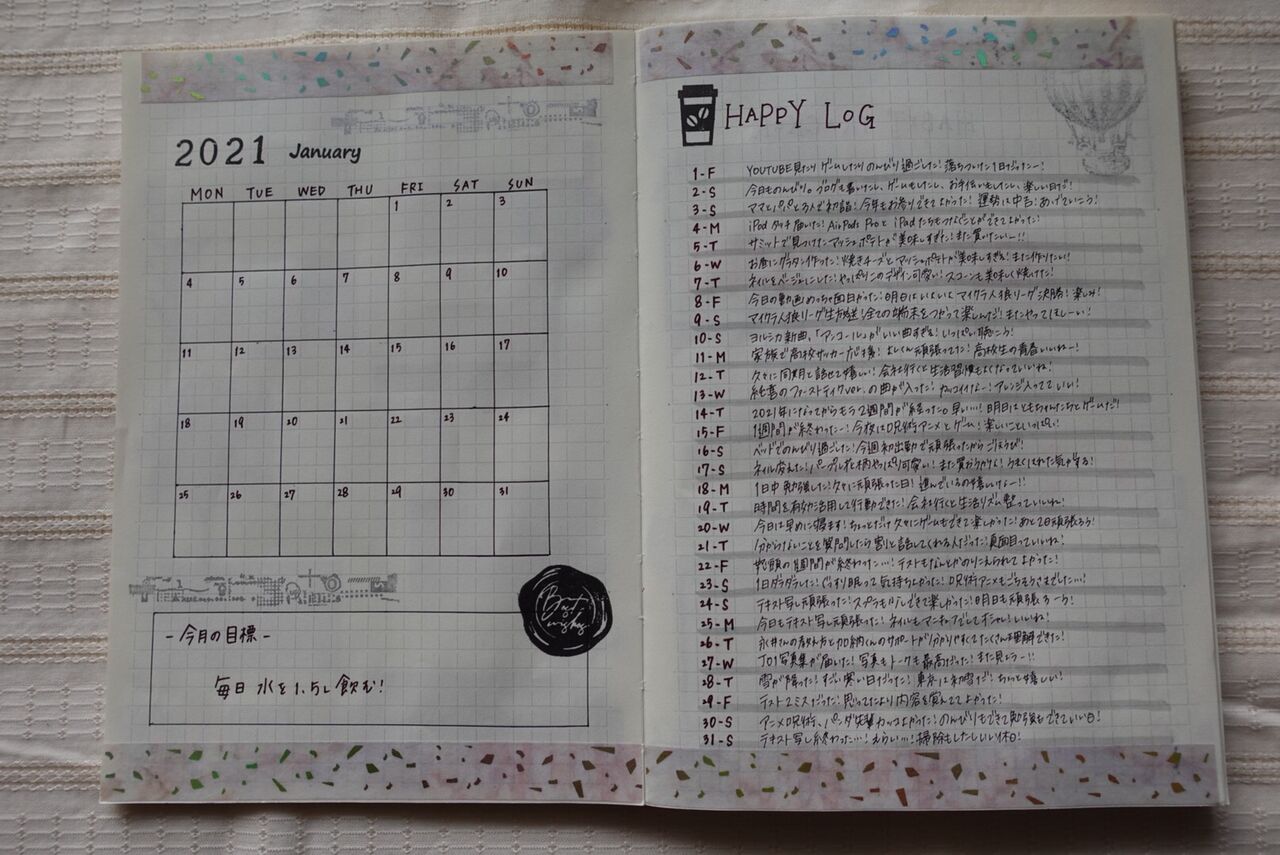 2021 January
MON TUE WED THU FRI SAT SUN
1 2 3
4 5 6 7 8 9 10
11 12 13 14 15 16 17
18 19 20 21 22 23 24
25 26 27 28 29 30 31
Best wishes
- 今月の目標 -
毎日 水を1.5L飲む!
HAPPY LOG
1-F YOUTUBE見たりゲームしたりのんびり過ごした!落ちついた1日だったー!
2-S 今日ものんびり。ブログも書いたし、ゲームもしたし、お手伝いもしたし、楽しい日だ!
3-S ママとパパと3人で初詣!今年もお参りできてよかった!運勢は中吉!あげていこう!
4-M iPodタッチ届いた!AirPods ProとiPadたちもつなぐことができてよかった!
5-T サミットで見つけたマッシュポテトが美味しすぎた!また買いたいー!!
6-W お昼にグラタン作った!焼きチーズとマッシュポテトが美味しすぎる!また作りたい!
7-T ネイルをベージュにした!やっぱりこのデザイン可愛い!スコーンも美味しく焼けた!
8-F 今日の動画めっちゃ面白かった!明日はいよいよマイクラ人狼リーグ決勝!楽しみ!
9-S マイクラ人狼リーグ生放送!全ての端末をつかって楽しんだ!またやってほしーい!
10-S ヨルシカ新曲、「アンコール」がいい曲すぎる!いっぱい聴こう!
11-M 家族で高校サッカー応援!よしくん頑張ってた!高校生の青春いいねー!
12-T 久々に同期と話せて嬉しい!会社行くと生活習慣もよくなっていいね!
13-W 純喜のファーストテイクver.の曲が入った!カッコイイなー!アレンジ入ってていい!
14-T 2021年になってからもう2週間が経った。早い…!明日はともちゃんたちとゲームだ!
15-F 1週間が終わったー!今夜は呪術アニメとゲーム!楽しいこといっぱい!
16-S ベッドでのんびり過ごした!今週初出勤で頑張ったからごほうび!
17-S ネイル変えた!パープル 柄やっぱり可愛い!また買おうかな!うまくはれた気がする!
18-M 1日中勉強した!久々に頑張った日!進んでいるの嬉しいなー!!
19-T 時間を有効活用して行動できた!会社行くと生活リズム整っていいね!
20-W 今日は早めに寝ます!ちょっとだけ久々にゲームもできて楽しかった!あと2日頑張ろう!
21-T 分からないことを質問したら割と話してくれる人だった!真面目っていいね!
22-F 地獄の1週間が終わった…!テストもなんとかのりこえられてよかった!
23-S 1日ダラダラした!ぐっすり眠って気持ちよかった!呪術アニメもごちそうさまでした…!
24-S テキスト写し頑張った!スプラも少しできて楽しかった!明日も頑張ろーう!
25-M 今日もテキスト写し頑張った!ネイルもマニキュアでしてオシャレ!いいね!
26-T 永井さんの教え方と加納くんのサポートが分かりやすくてたくさん理解できた!
27-W JO1写真集が届いた!写真もトークも最高だった!また見ようー!!
28-T 雪が降った!すごい寒い日だった!東京は初雪だ!ちょっと嬉しい!
29-F テスト2ミスだった!思ってたより内容を覚えててよかった!
30-S アニメ呪術、パンダ先輩カッコよかった!のんびりもできて勉強もできていい日!
31-S テキスト写し終わった…!えらい…!掃除もしたしいい休日!